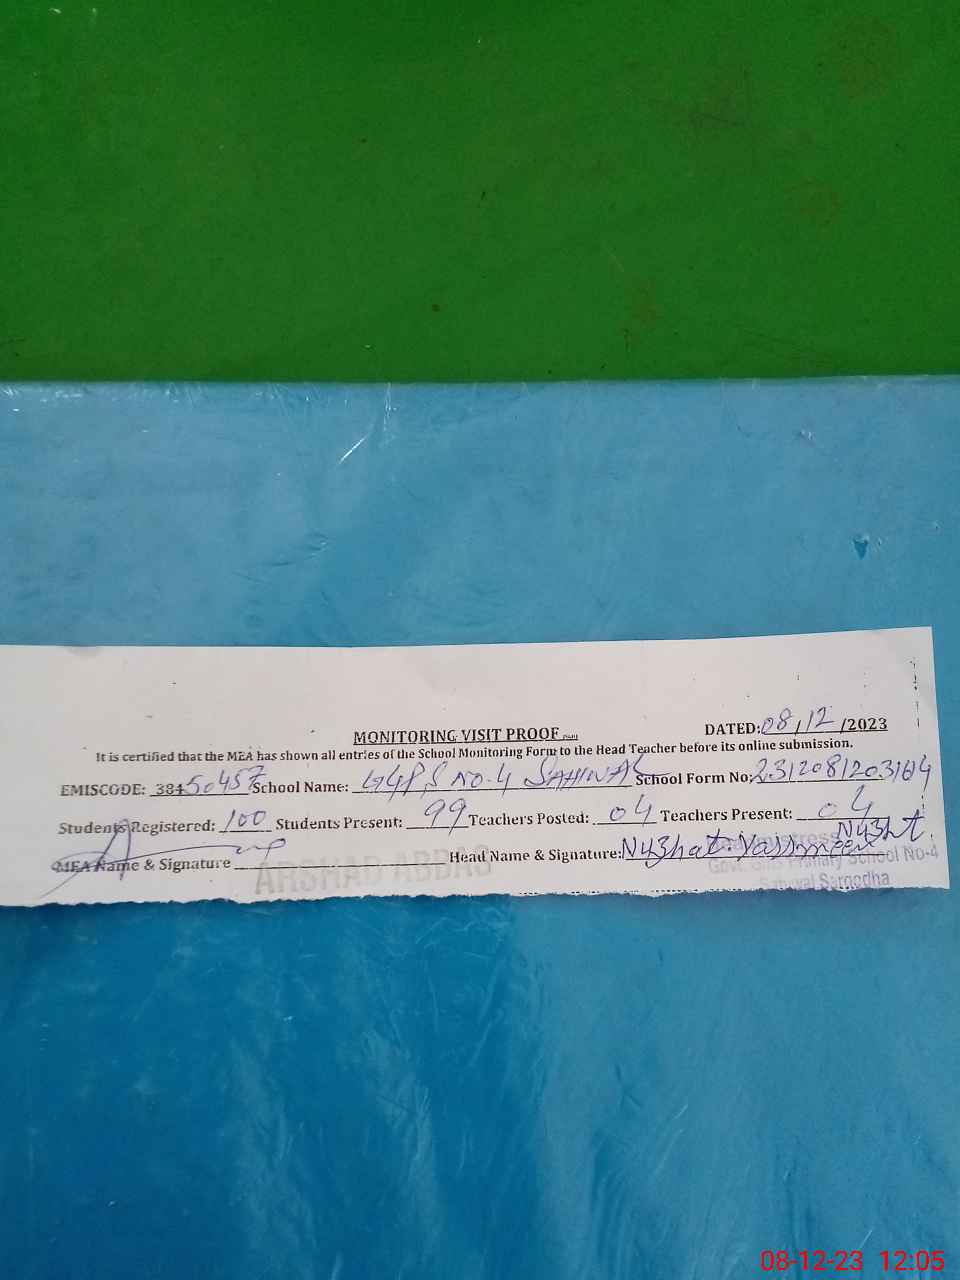 MONITORING VISIT PROOF
DATED: 08/12/2023
It is certified that the MEA has shown all entries of the School Monitoring Form to the Head Teacher before its online submission.
EMISCODE: 38450457 School Name: GGPS NO-4 SAHIWAL School Form No: 2312081203164
Students Registered: 100 Students Present: 99 Teachers Posted: 04 Teachers Present: 04
MEA Name & Signature ARSHAD ABBAS Head Name & Signature: Nuzhat Yassmeen Nuzht
Headmistress
Govt. Girls Primary School No-4
Sahiwal Sargodha
08-12-23 12:05